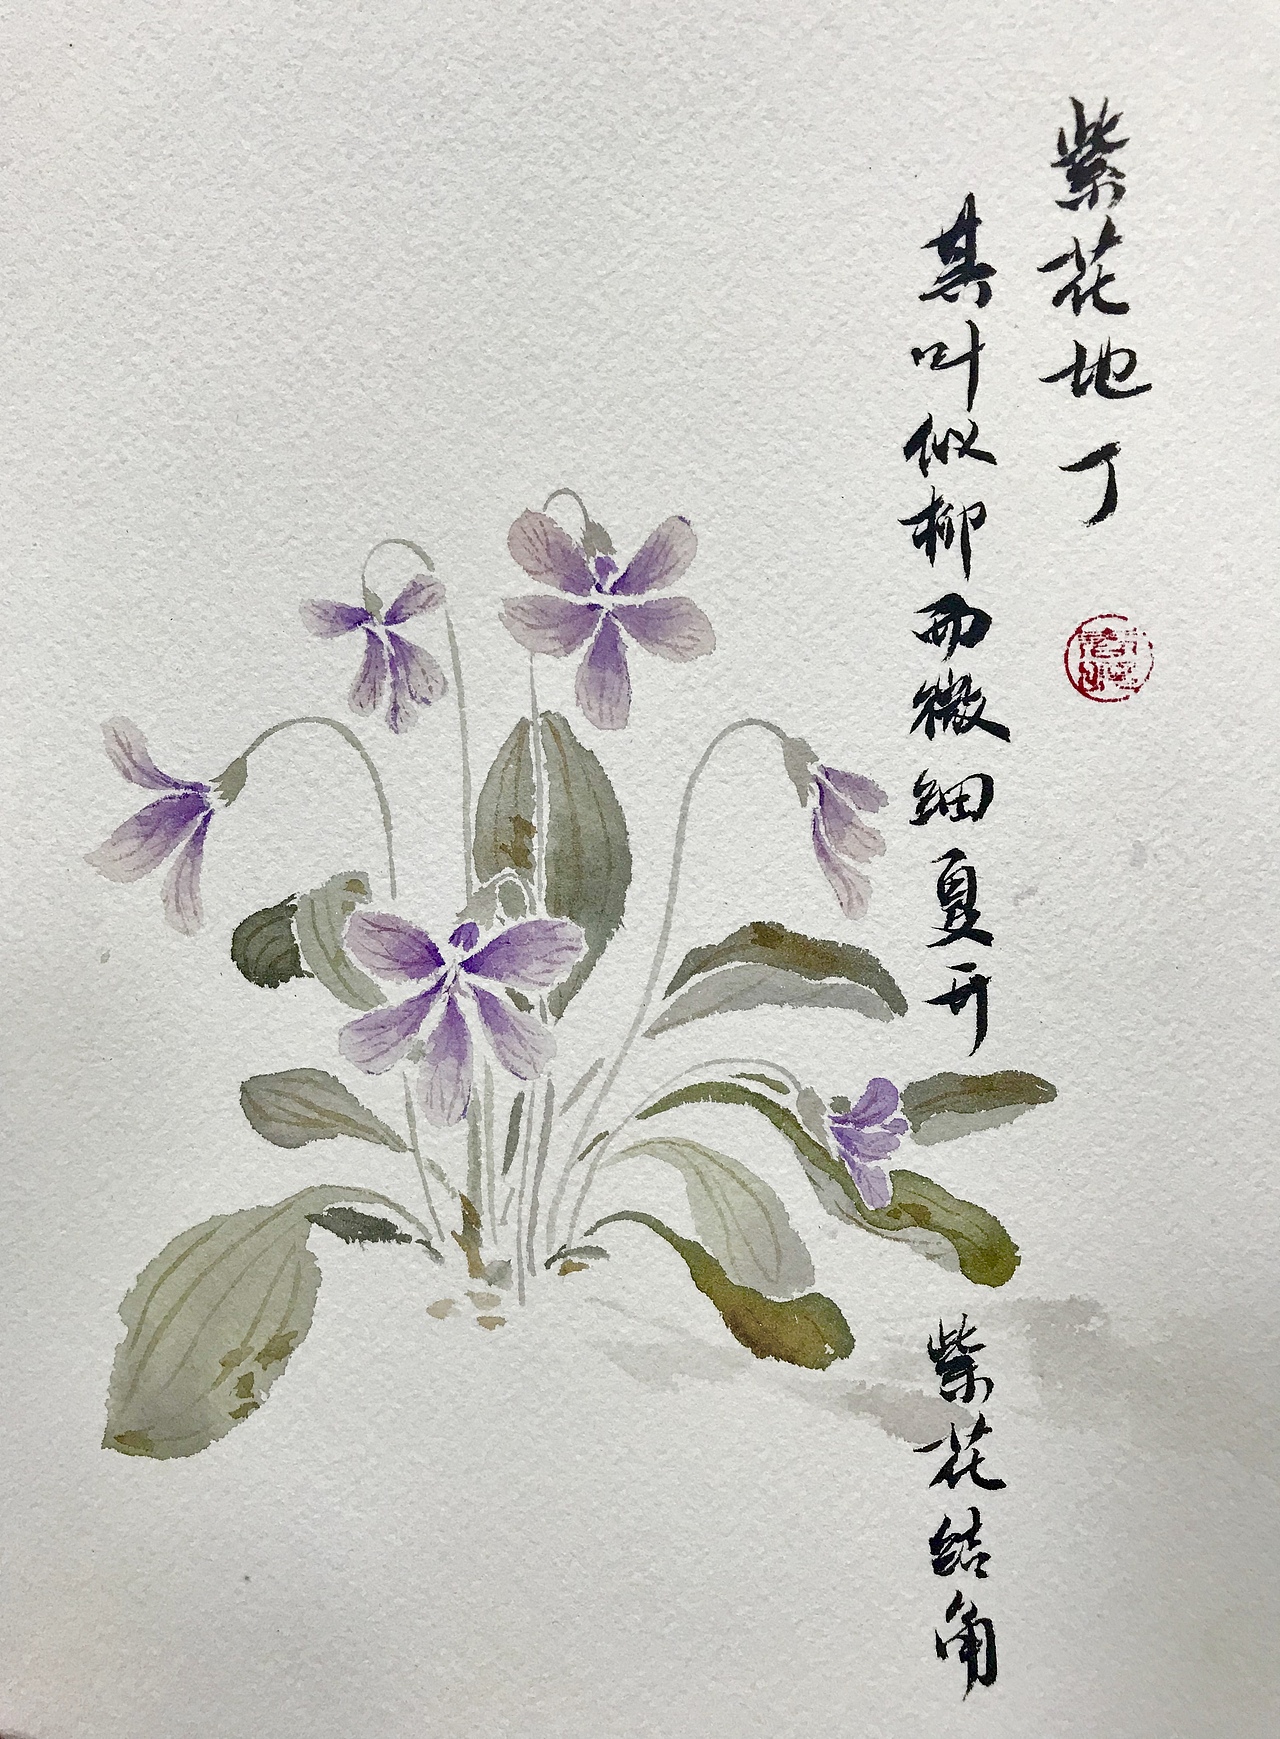 紫花地丁
其叶似柳而微细夏开
紫花结角